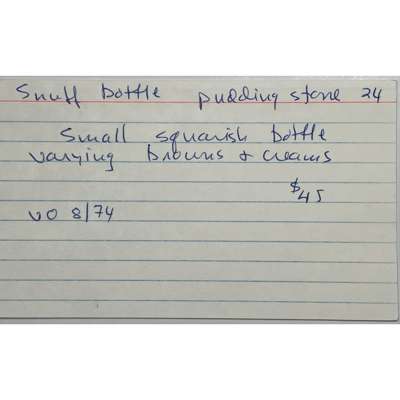 Snuff bottle pudding stone 24
Small squarish bottle
varying browns & creams
$45
VO 8/74